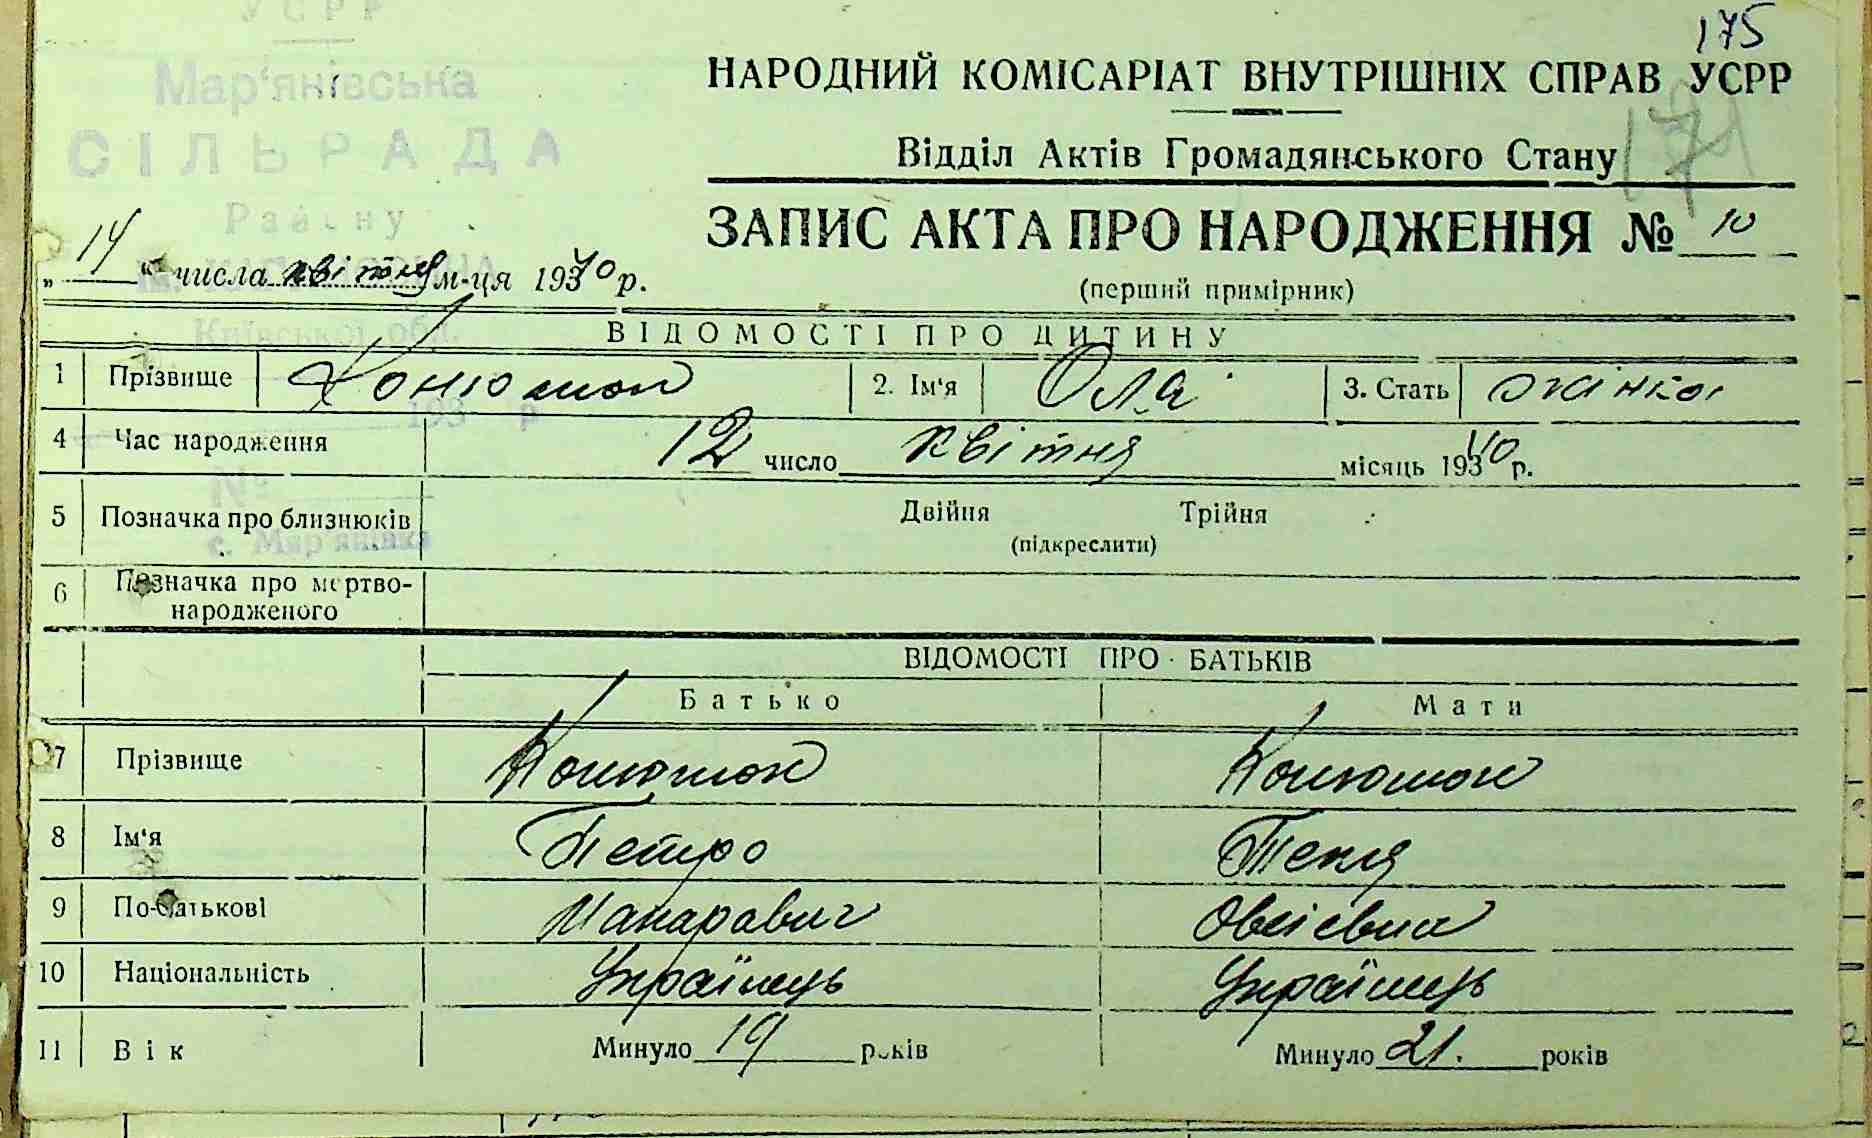 УСРР
Мар'янівська
СІЛЬРАДА
Району
Київської обл.
193 р.
№
с. Мар'янівка
175
НАРОДНИЙ КОМІСАРІАТ ВНУТРІШНІХ СПРАВ УСРР
171
Відділ Актів Громадянського Стану
ЗАПИС АКТА ПРО НАРОДЖЕННЯ № 10
(перший примірник)
„ 14 “ числа квітня м-ця 1940 р.
ВІДОМОСТІ ПРО ДИТИНУ
1 Прізвище Конюшок 2. Ім'я Оля 3. Стать жінка
4 Час народження 12 число квітня місяць 19340 р.
5 Позначка про близнюків Двійня Трійня
(підкреслити)
6 Позначка про мертво-
народженого
ВІДОМОСТІ ПРО БАТЬКІВ
Батько Мати
7 Прізвище Конюшок Конюшок
8 Ім'я Петро Текля
9 По-батькові Макарович Овсієвна
10 Національність Українець Українець
11 Вік Минуло 19 років Минуло 21. років